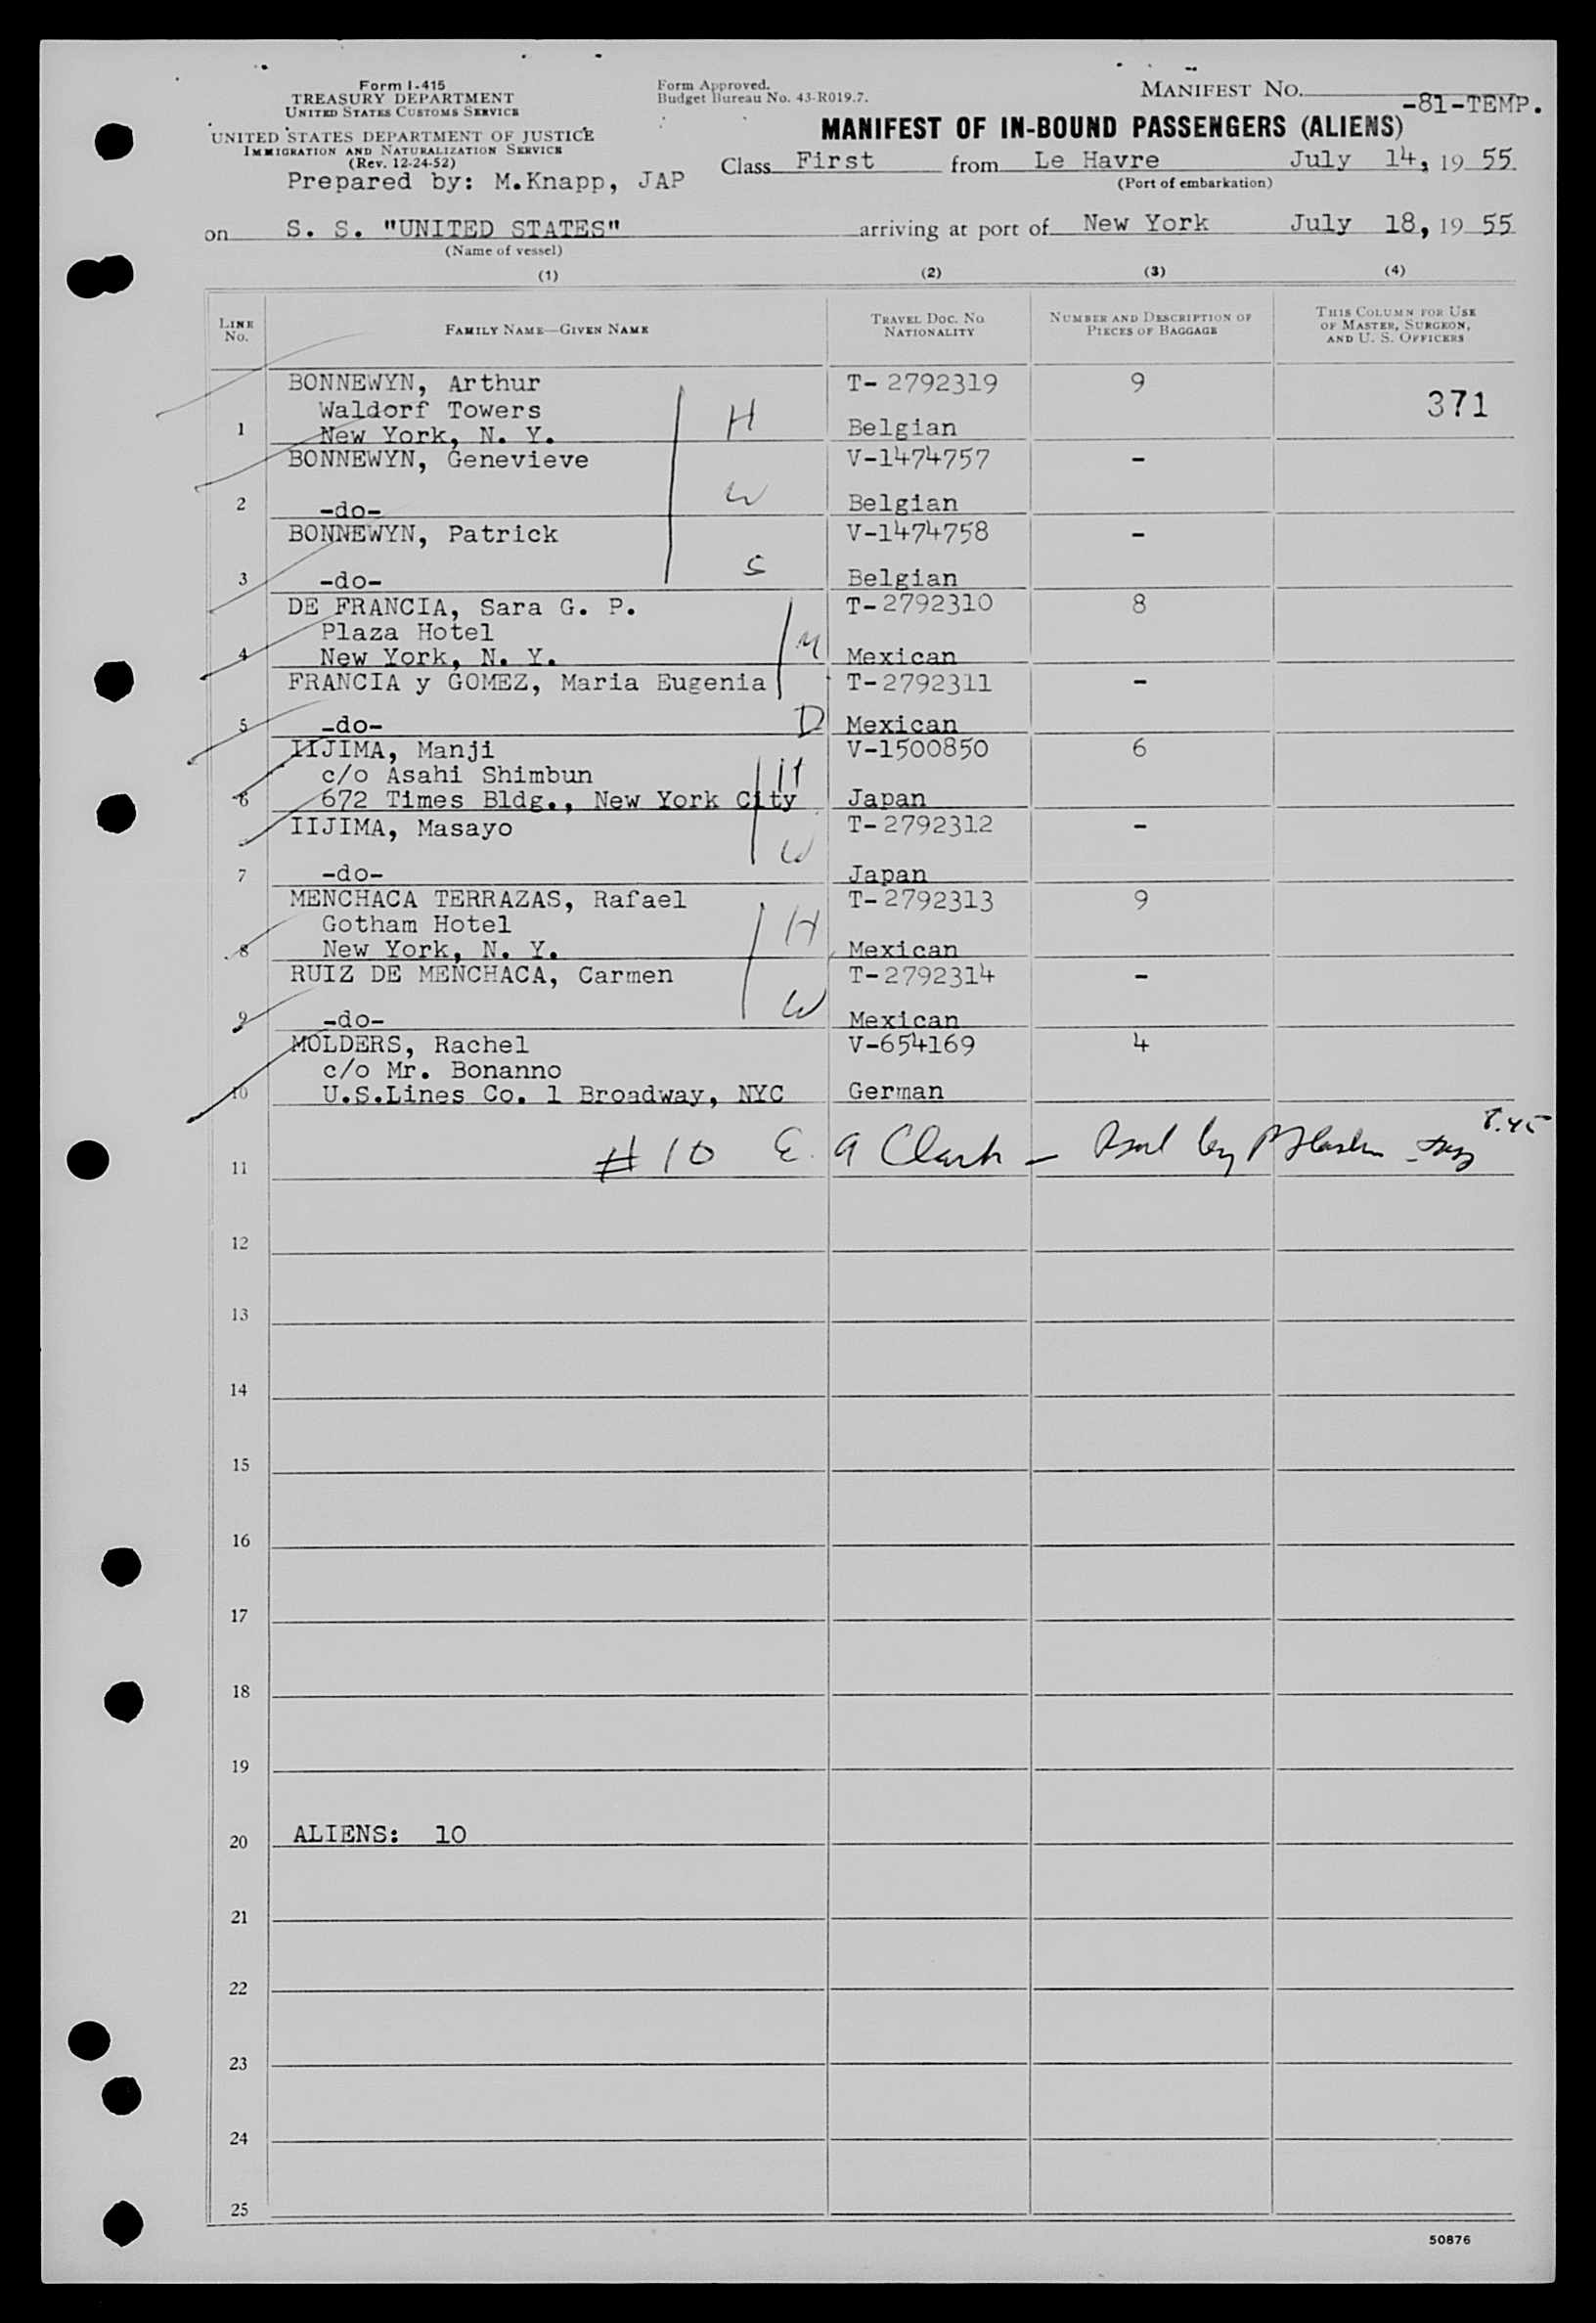 Form I-415
TREASURY DEPARTMENT
UNITED STATES CUSTOMS SERVICE
UNITED STATES DEPARTMENT OF JUSTICE
IMMIGRATION AND NATURALIZATION SERVICE
(Rev. 12-24-52)
Prepared by: M.Knapp, JAP
Form Approved.
Budget Bureau No. 43-R019.7.
MANIFEST NO. -81-TEMP.
MANIFEST OF IN-BOUND PASSENGERS (ALIENS)
Class First from Le Havre July 14, 19 55
(Port of embarkation)
on S. S. "UNITED STATES" arriving at port of New York July 18, 19 55
(Name of vessel)
(1) (2) (3) (4)
LINE No. FAMILY NAME—GIVEN NAME TRAVEL DOC. NO. NATIONALITY NUMBER AND DESCRIPTION OF PIECES OF BAGGAGE THIS COLUMN FOR USE OF MASTER, SURGEON, AND U. S. OFFICERS
BONNEWYN, Arthur T-2792319 9
Waldorf Towers H 371
1 New York, N. Y. Belgian
BONNEWYN, Genevieve V-1474757 -
2 -do- W Belgian
BONNEWYN, Patrick V-1474758 -
3 -do- S Belgian
DE FRANCIA, Sara G. P. T-2792310 8
Plaza Hotel M
4 New York, N. Y. Mexican
FRANCIA y GOMEZ, Maria Eugenia T-2792311 -
5 -do- D Mexican
IIJIMA, Manji V-1500850 6
c/o Asahi Shimbun H
6 672 Times Bldg., New York City Japan
IIJIMA, Masayo T-2792312 -
W
7 -do- Japan
MENCHACA TERRAZAS, Rafael T-2792313 9
Gotham Hotel H
8 New York, N. Y. Mexican
RUIZ DE MENCHACA, Carmen T-2792314 -
9 -do- W Mexican
MOLDERS, Rachel V-654169 4
c/o Mr. Bonanno
10 U.S.Lines Co. 1 Broadway, NYC German
11 # 10 E. A Clark - by 8.45
12
13
14
15
16
17
18
19
20 ALIENS: 10
21
22
23
24
25
50876